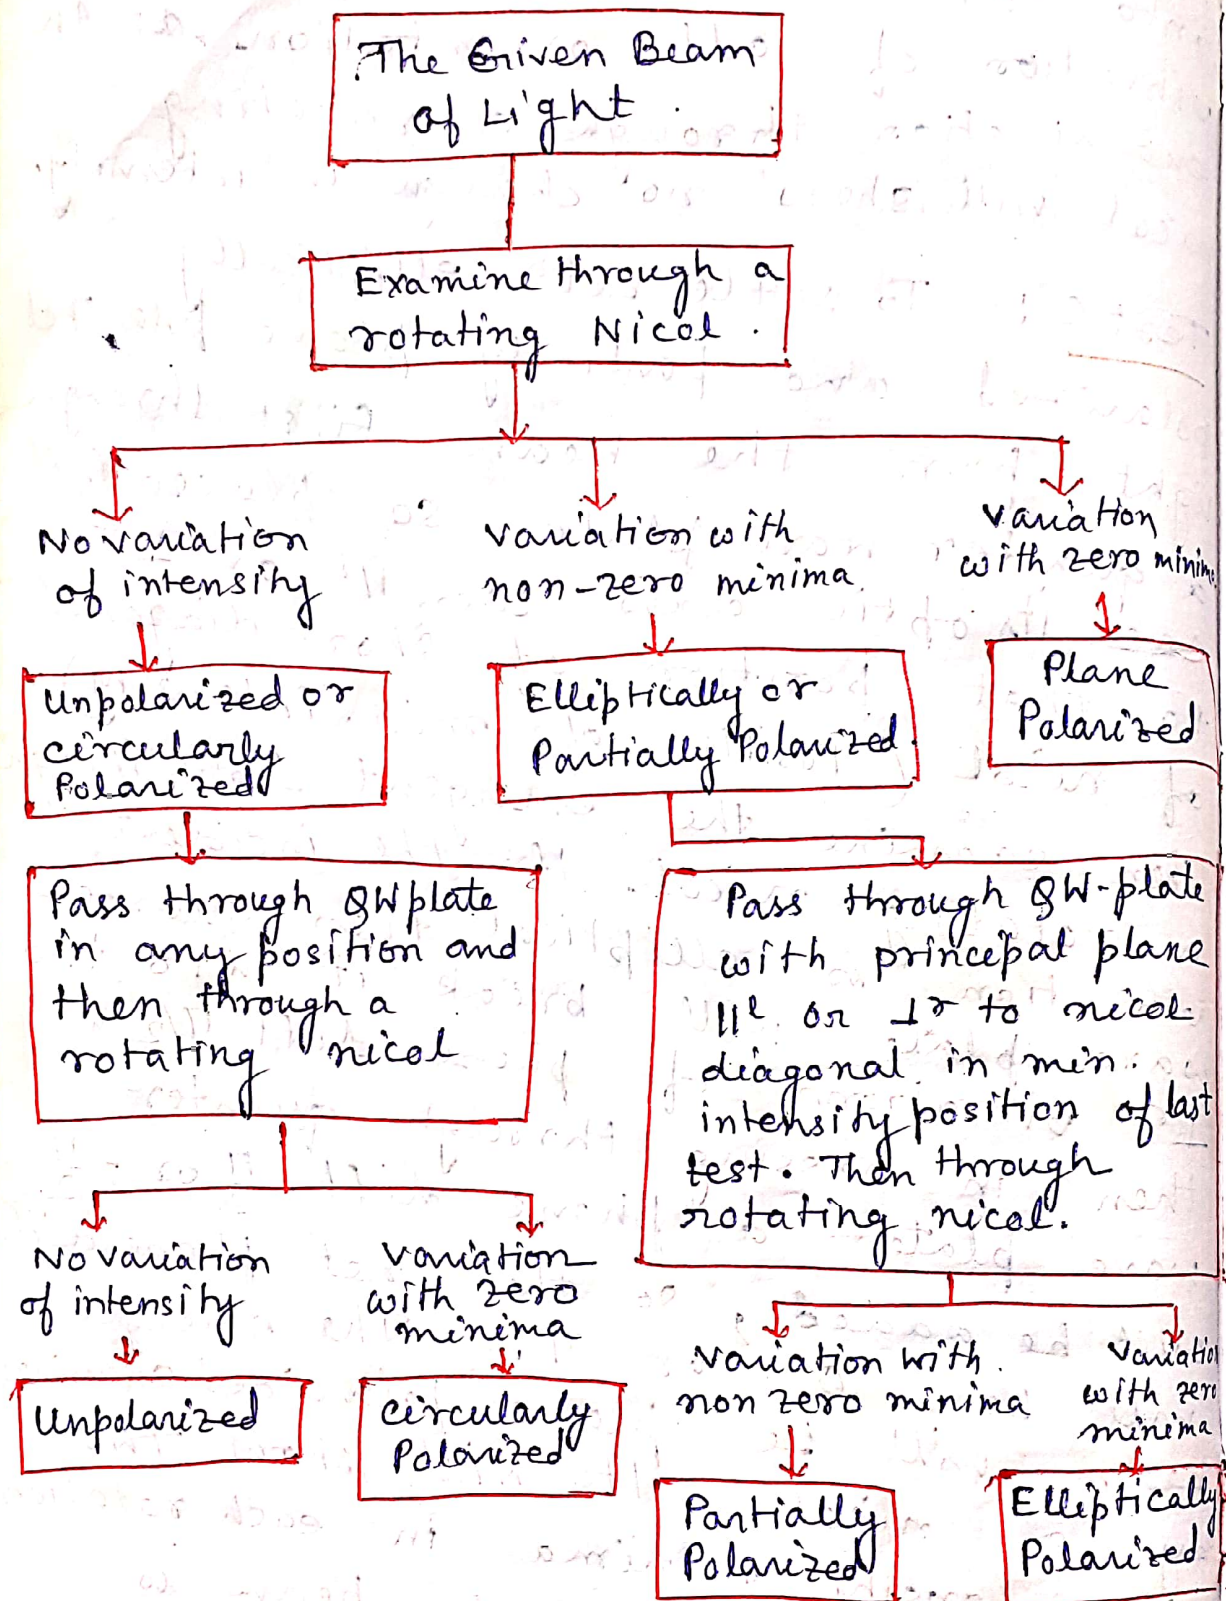 The Given Beam
of Light.
Examine through a
rotating Nicol.
No variation
of intensity
variation with
non-zero minima.
variation
with zero minim
Unpolarized or
circularly
Polarized
Elliptically or
Partially Polarized.
Plane
Polarized
Pass through QW plate
in any position and
then through a
rotating nicol
Pass through QW-plate
with principal plane
11l or ⊥r to nicol
diagonal in min.
intensity position of last
test. Then through
rotating nicol.
No variation
of intensity
variation
with zero
minima
variation with.
non zero minima
variatio
with zero
minima
Unpolarized
circularly
Polarized
Partially
Polarized
Elliptically
Polarized